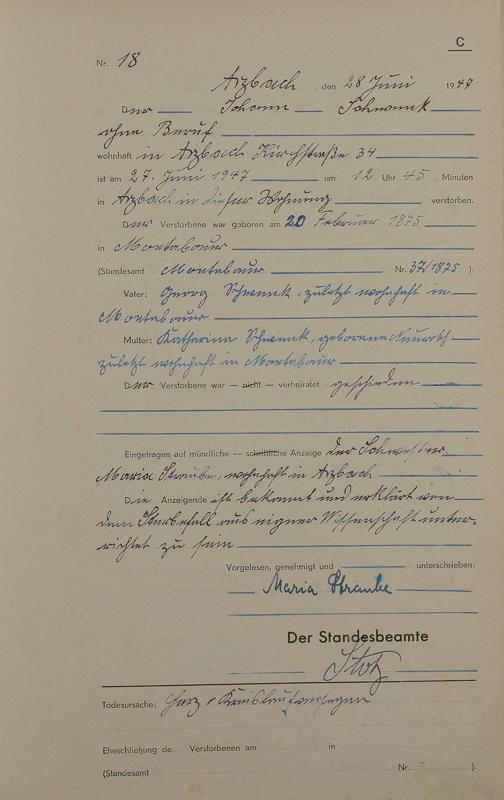 C
Nr. 18
Arzbach, den 28 Juni 1947
Der Johann Schwenk
ohne Beruf
wohnhaft in Arzbach Kirchstraße 34
ist am 27. Juni 1947 um 12 Uhr 45 Minuten
in Arzbach in dieser Wohnung verstorben.
Der Verstorbene war geboren am 20 Februar 1875
in Montabaur
(Standesamt Montabaur Nr. 37/1825 ).
Vater: Georg Schwenk, zuletzt wohnhaft in
Montabaur
Mutter: Katharina Schwenk, geborene
zuletzt wohnhaft in Montabaur
Der Verstorbene war — nicht — verheiratet geschieden
Eingetragen auf mündliche — schriftliche Anzeige der Schwester
Maria Straube, wohnhaft in Arzbach
Die Anzeigende ist bekannt und erklärt von
dem Sterbefall aus eigner Wissenschaft unter-
richtet zu sein
Vorgelesen, genehmigt und unterschrieben:
Maria Straube
Der Standesbeamte
Todesursache: Herz & Kreislaufversagen
Eheschließung de Verstorbenen am in
(Standesamt Nr. ).